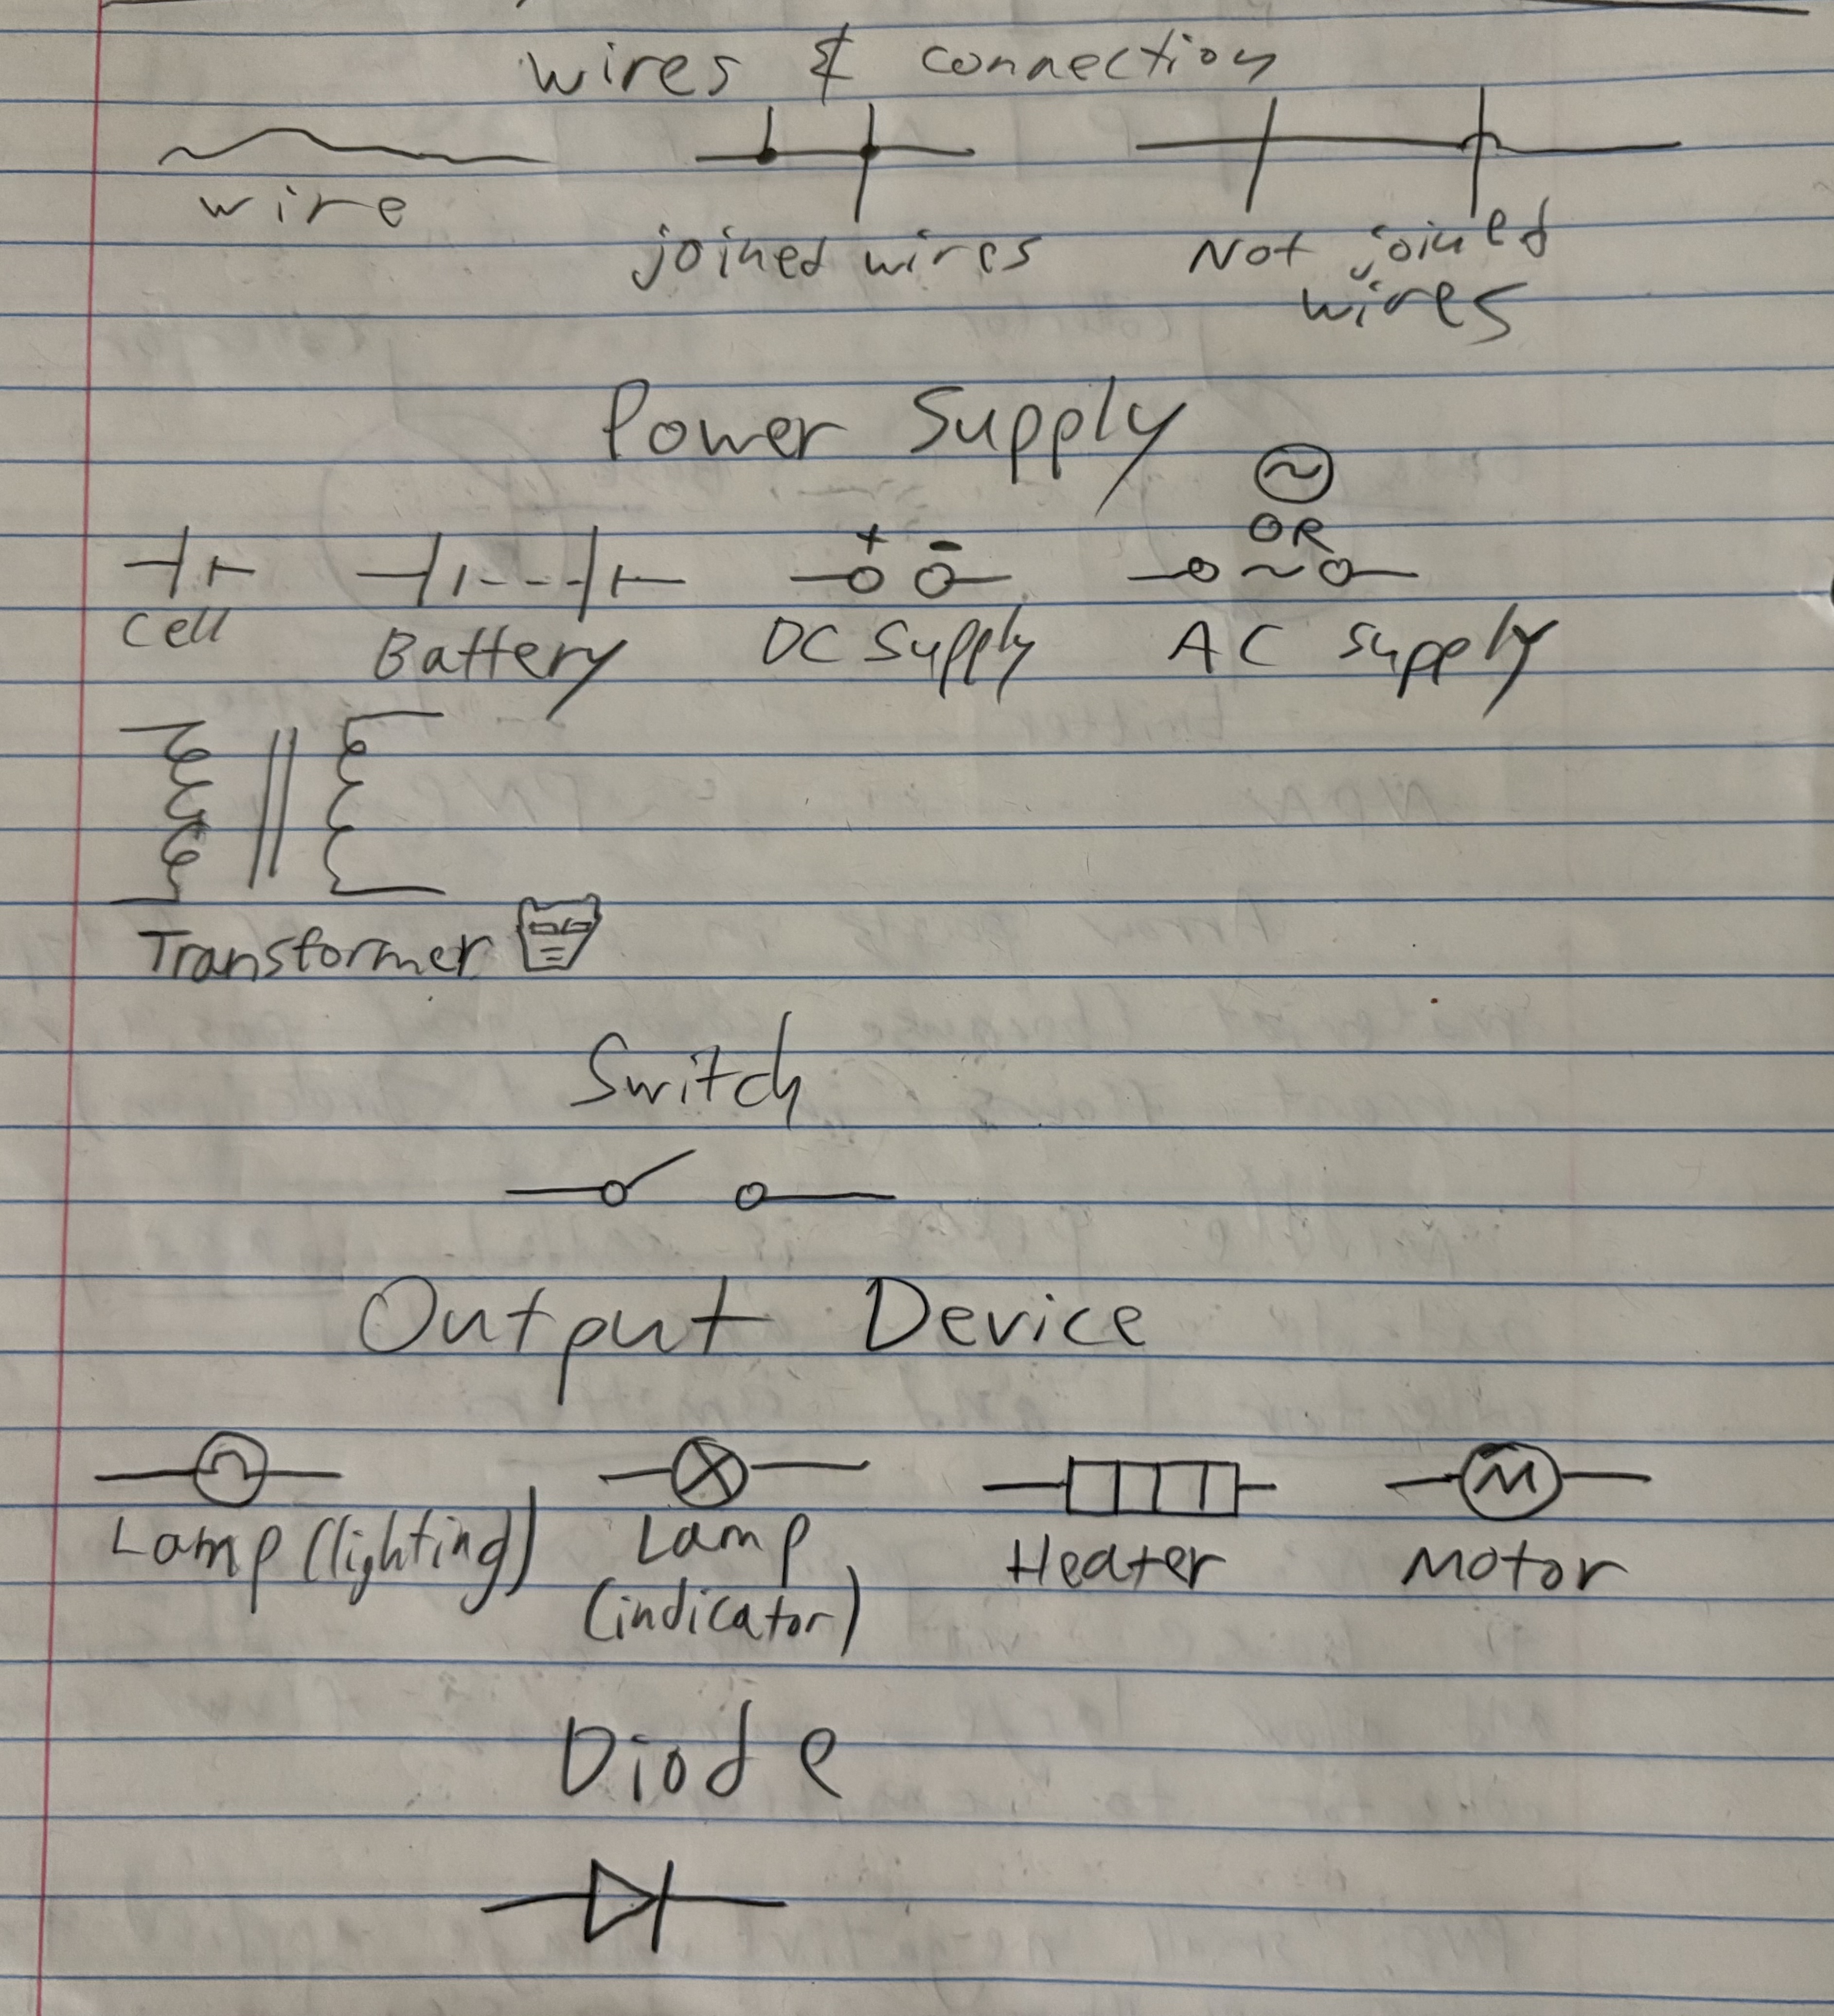 wires & connection
wire
joined wires
Not joined
wires
Power Supply
+ -
OR
~
Cell
Battery
DC Supply
AC Supply
Transformer
Switch
Output Device
M
Lamp (lighting)
Lamp
(indicator)
Heater
Motor
Diode